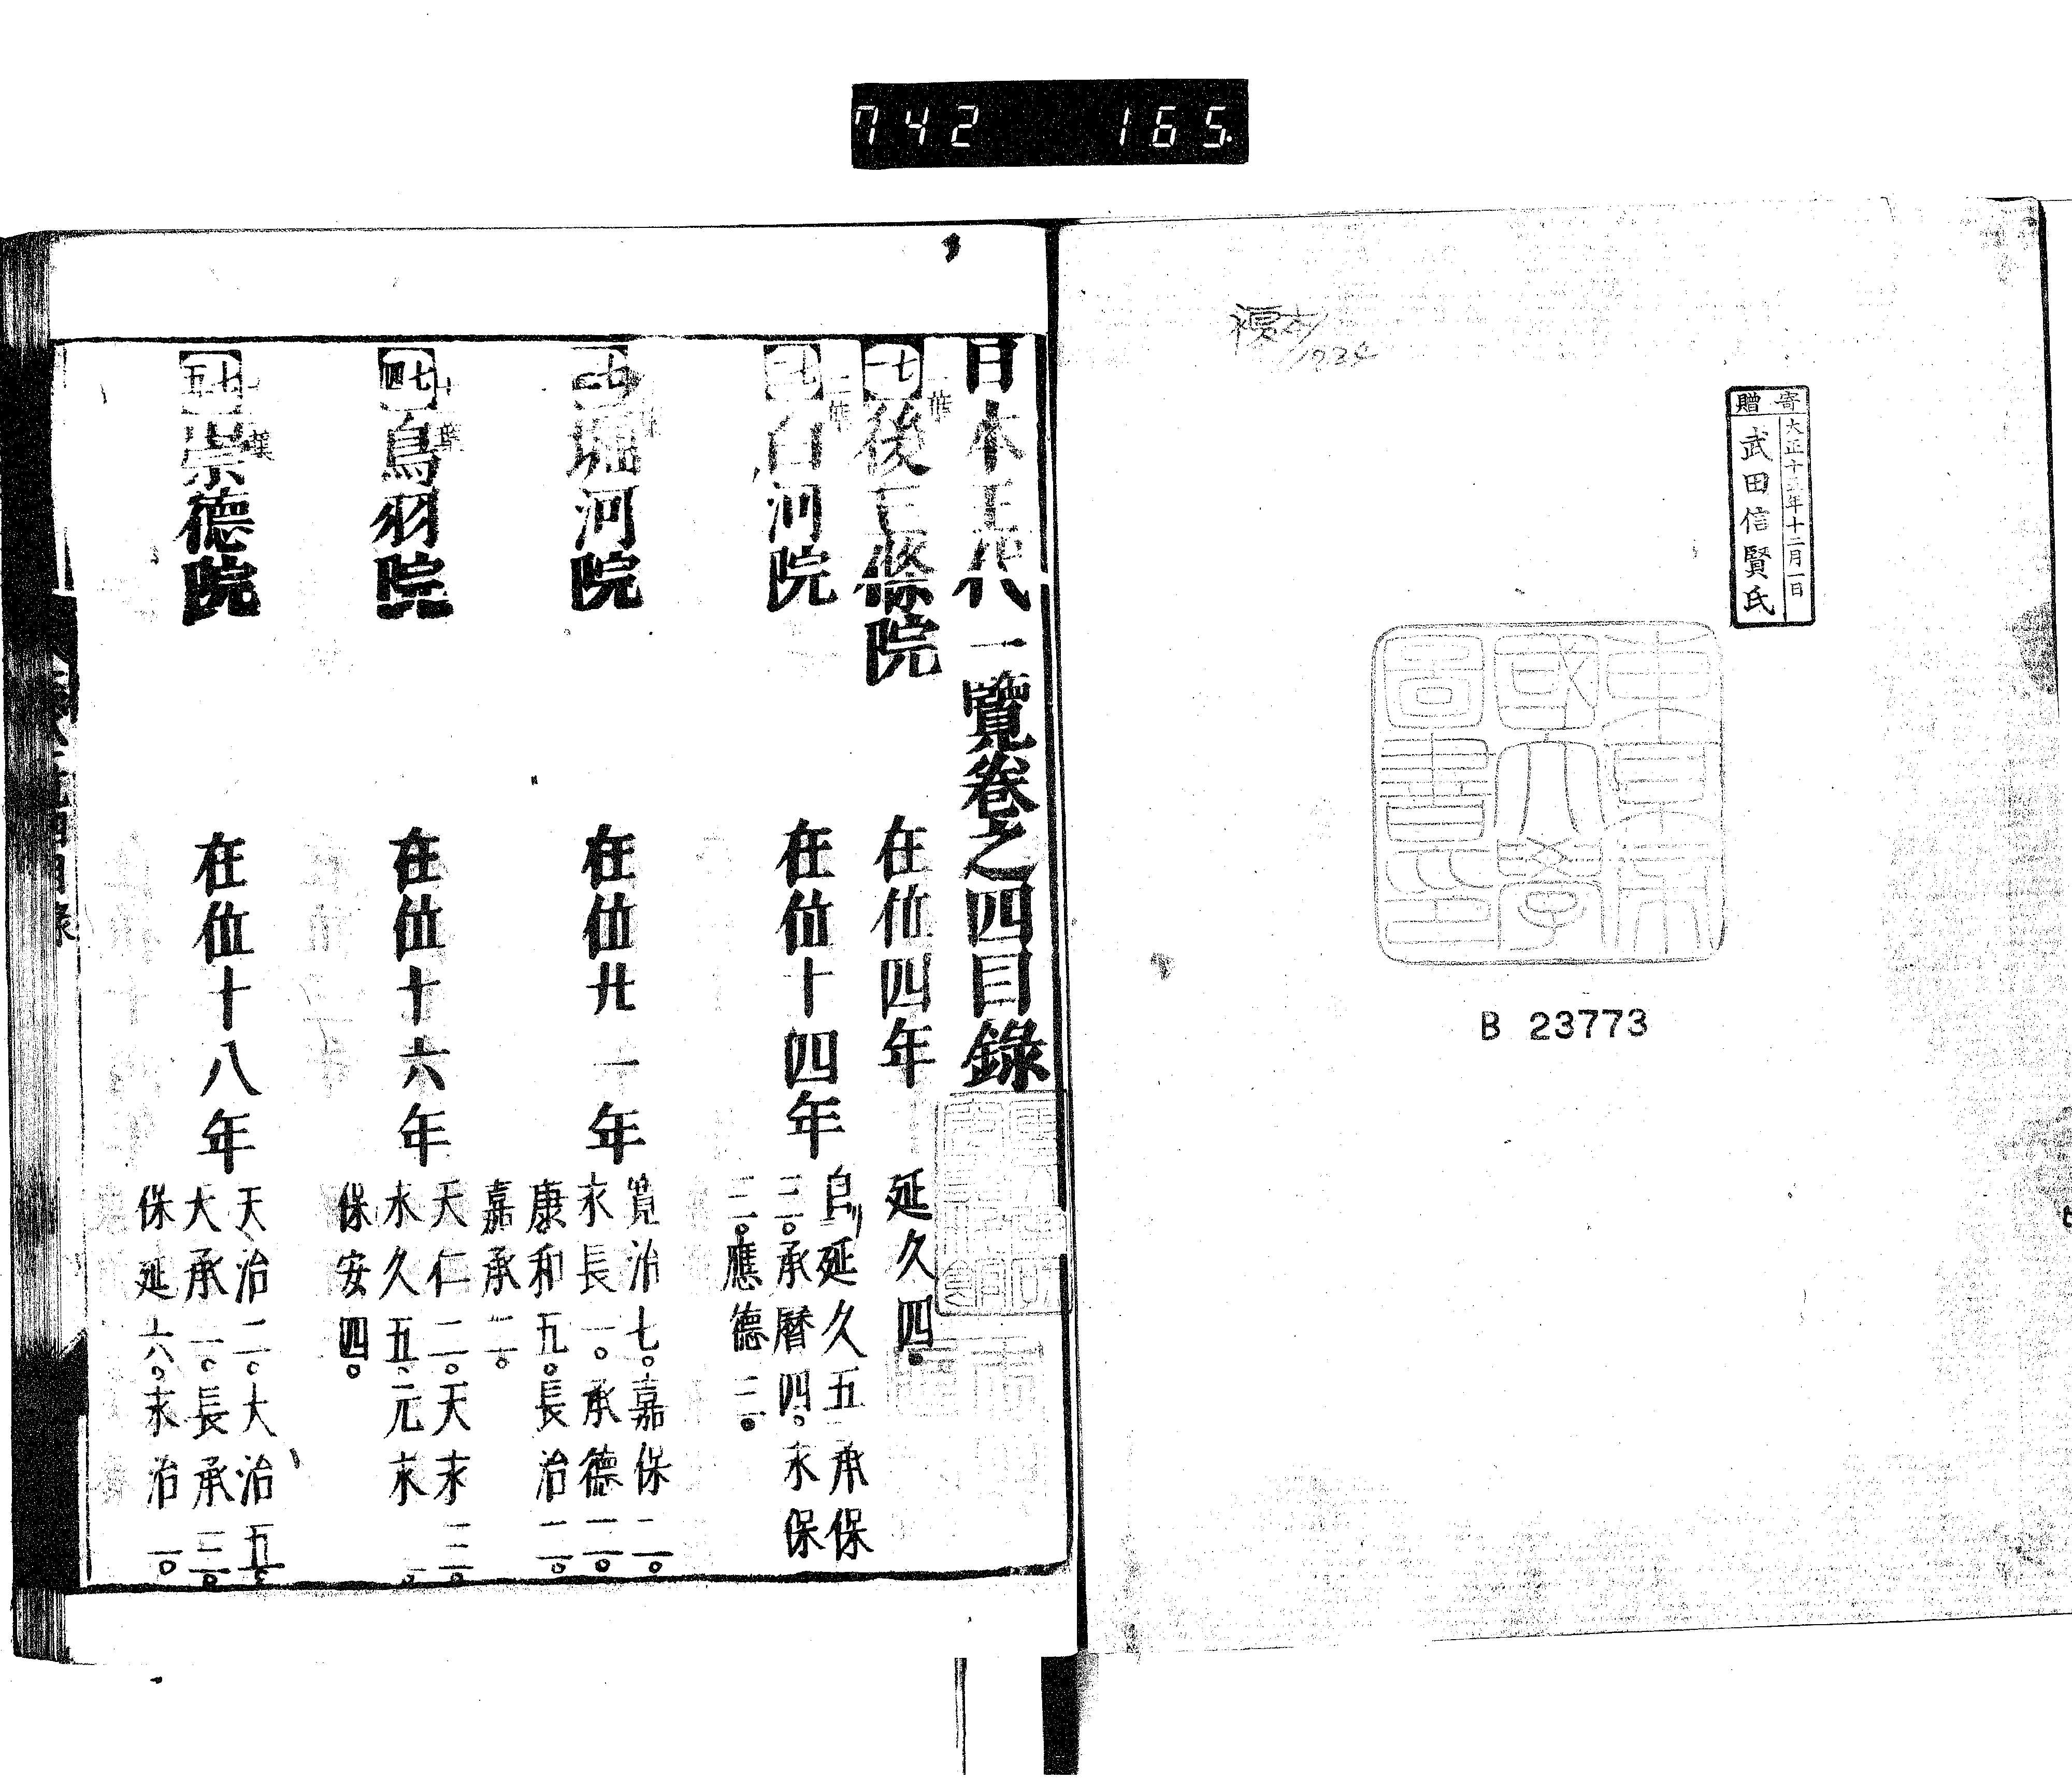 742 165
複本
寄贈
大正十三年十二月一日
武田信賢氏
東京帝國大學圖書印
B 23773
日本王代一覽卷之四目錄
七一 後三條院 在位四年 延久四
七二 白河院 在位十四年 自延久五承保
三○承曆四○永保
三○應德三○
七三 堀河院 在位廿一年 寬治七○嘉保二○
永長一○承德二○
康和五○長治二○
嘉承二○
七四 鳥羽院 在位十六年 天仁二○天永三○
永久五○元永二○
保安四○
七五 崇德院 在位十八年 天治二○大治五○
天承一○長承三○
保延六○永治一○